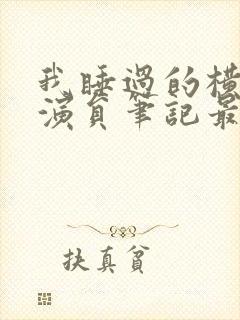 我睡過的橫
演員筆記最
扶真貧